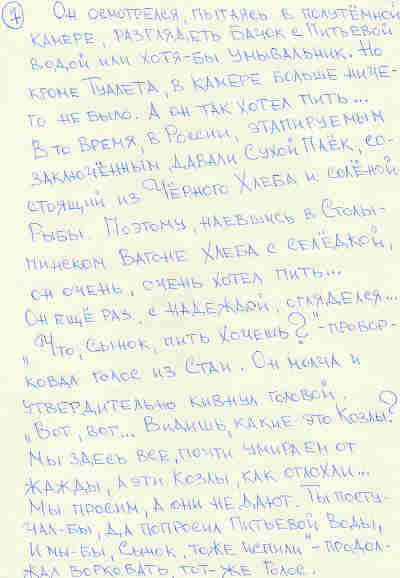 7
Он осмотрелся, пытаясь в полутёмной
камере, разглядеть бачок с питьевой
водой или хотя-бы умывальник. Но
кроме туалета, в камере больше ниче-
го не было. А он так хотел пить...
В то время, в России, этапируемым
заключённым давали сухой паёк, со-
стоящий из чёрного хлеба и солёной
рыбы. Поэтому, наевшись в Столы-
пинском вагоне хлеба с селёдкой,
он очень, очень хотел пить...
Он ещё раз, с надеждой, огляделся...
"Что, сынок, пить хочешь?" - провор-
ковал голос из стаи. Он молча и
утвердительно кивнул головой.
"Вот, вот... Видишь, какие это козлы?
Мы здесь все, почти умираем от
жажды, а эти козлы, как оглохли...
Мы просим, а они не дают. Ты посту-
чал-бы, да попросил питьевой воды,
и мы-бы, сынок, тоже испили" - продол-
жал ворковать, тот-же голос.